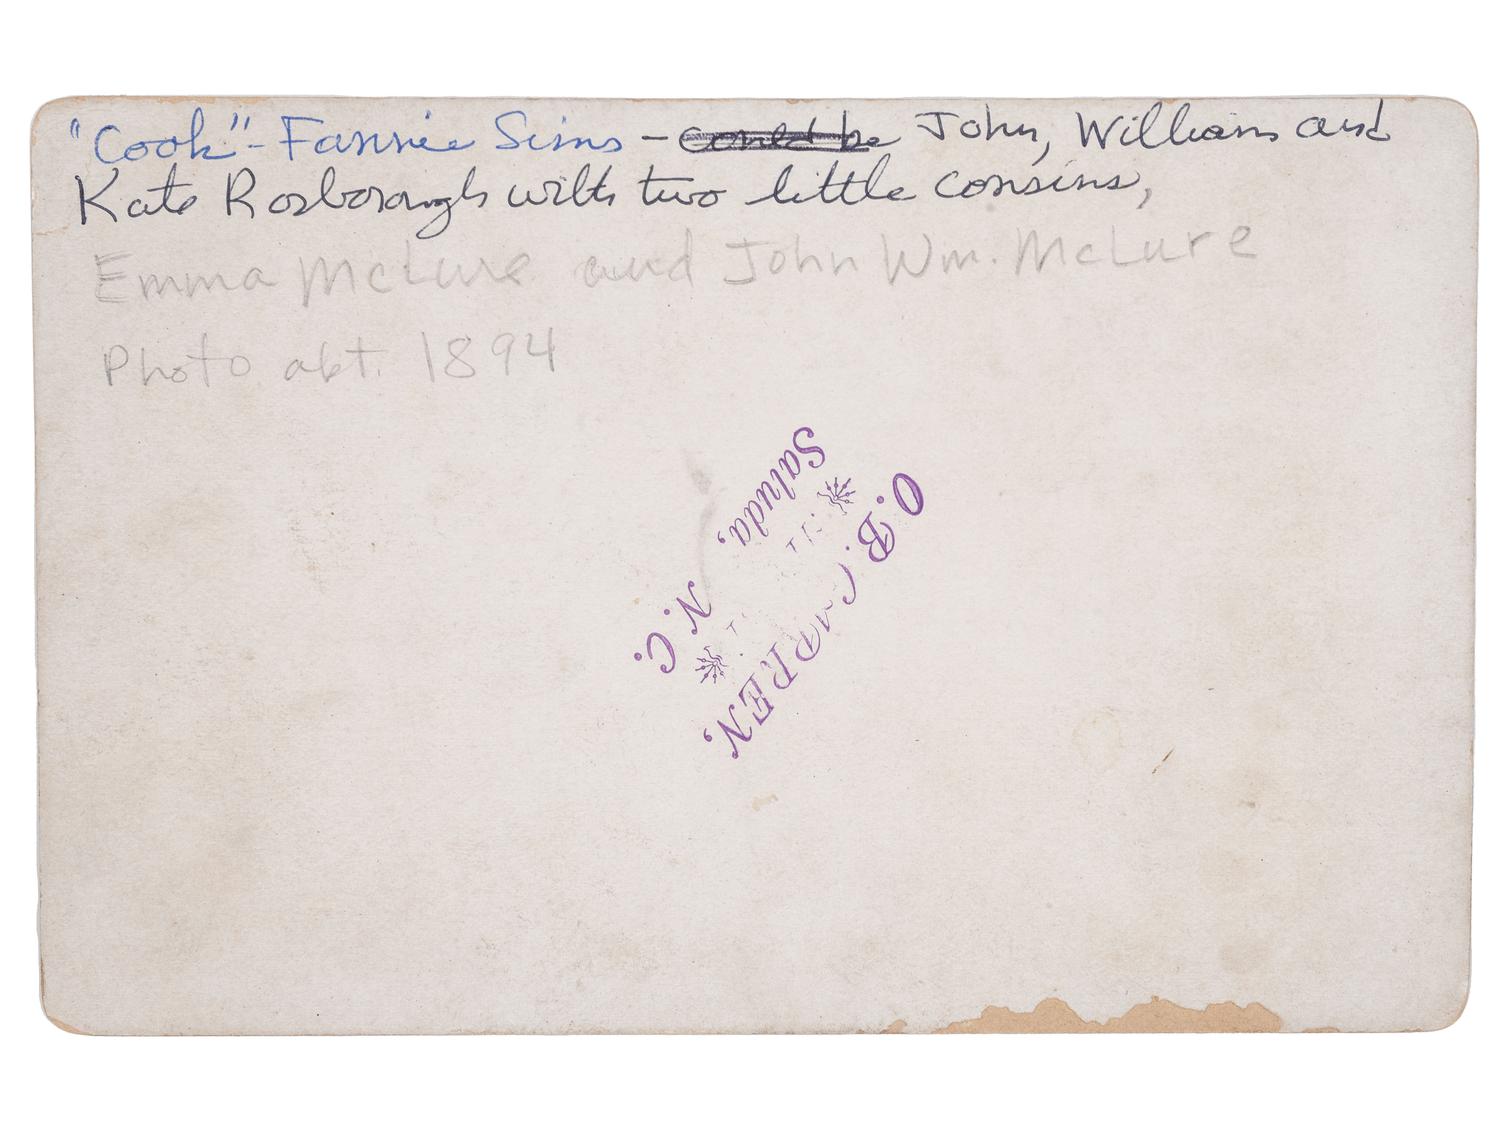 "Cook" - Fannie Sims - could be John, William and
Kate Rosborough with two little cousins,
Emma McLure and John Wm. McLure
Photo abt. 1894
O. B.
Saluda, N. C.